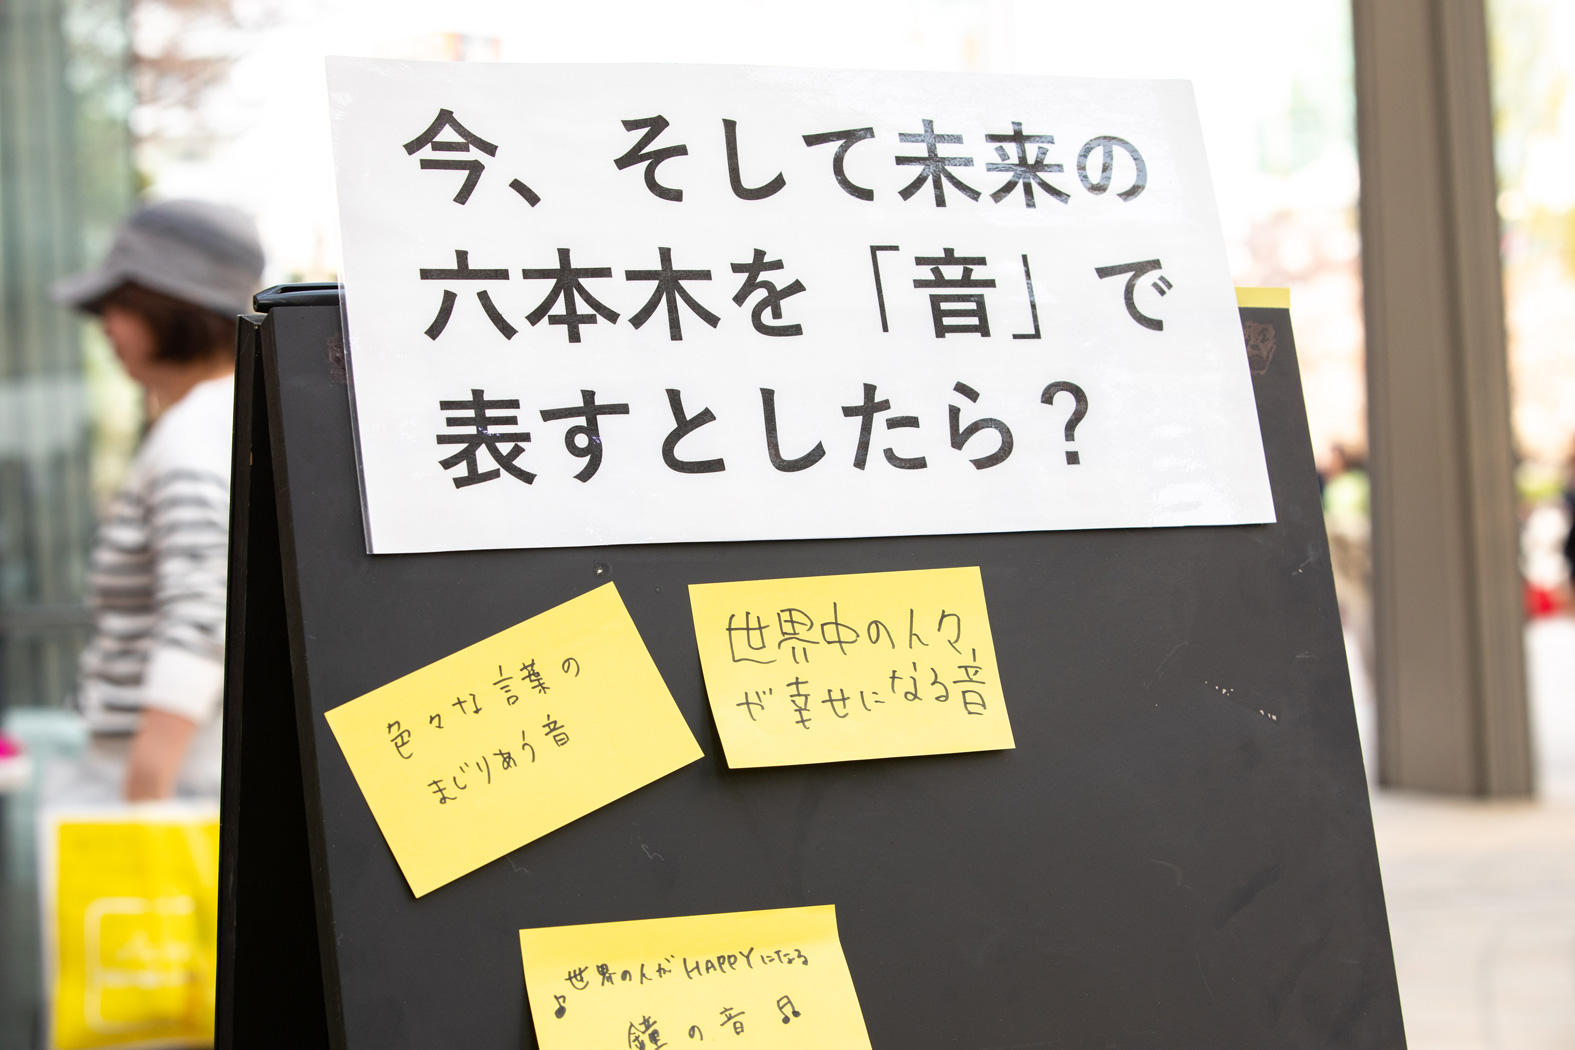 今、そして未来の
六本木を「音」で
表すとしたら？
色々な言葉の
まじりあう音
世界中の人々
が幸せになる音
世界の人がHAPPYになる
♪鐘の音♫